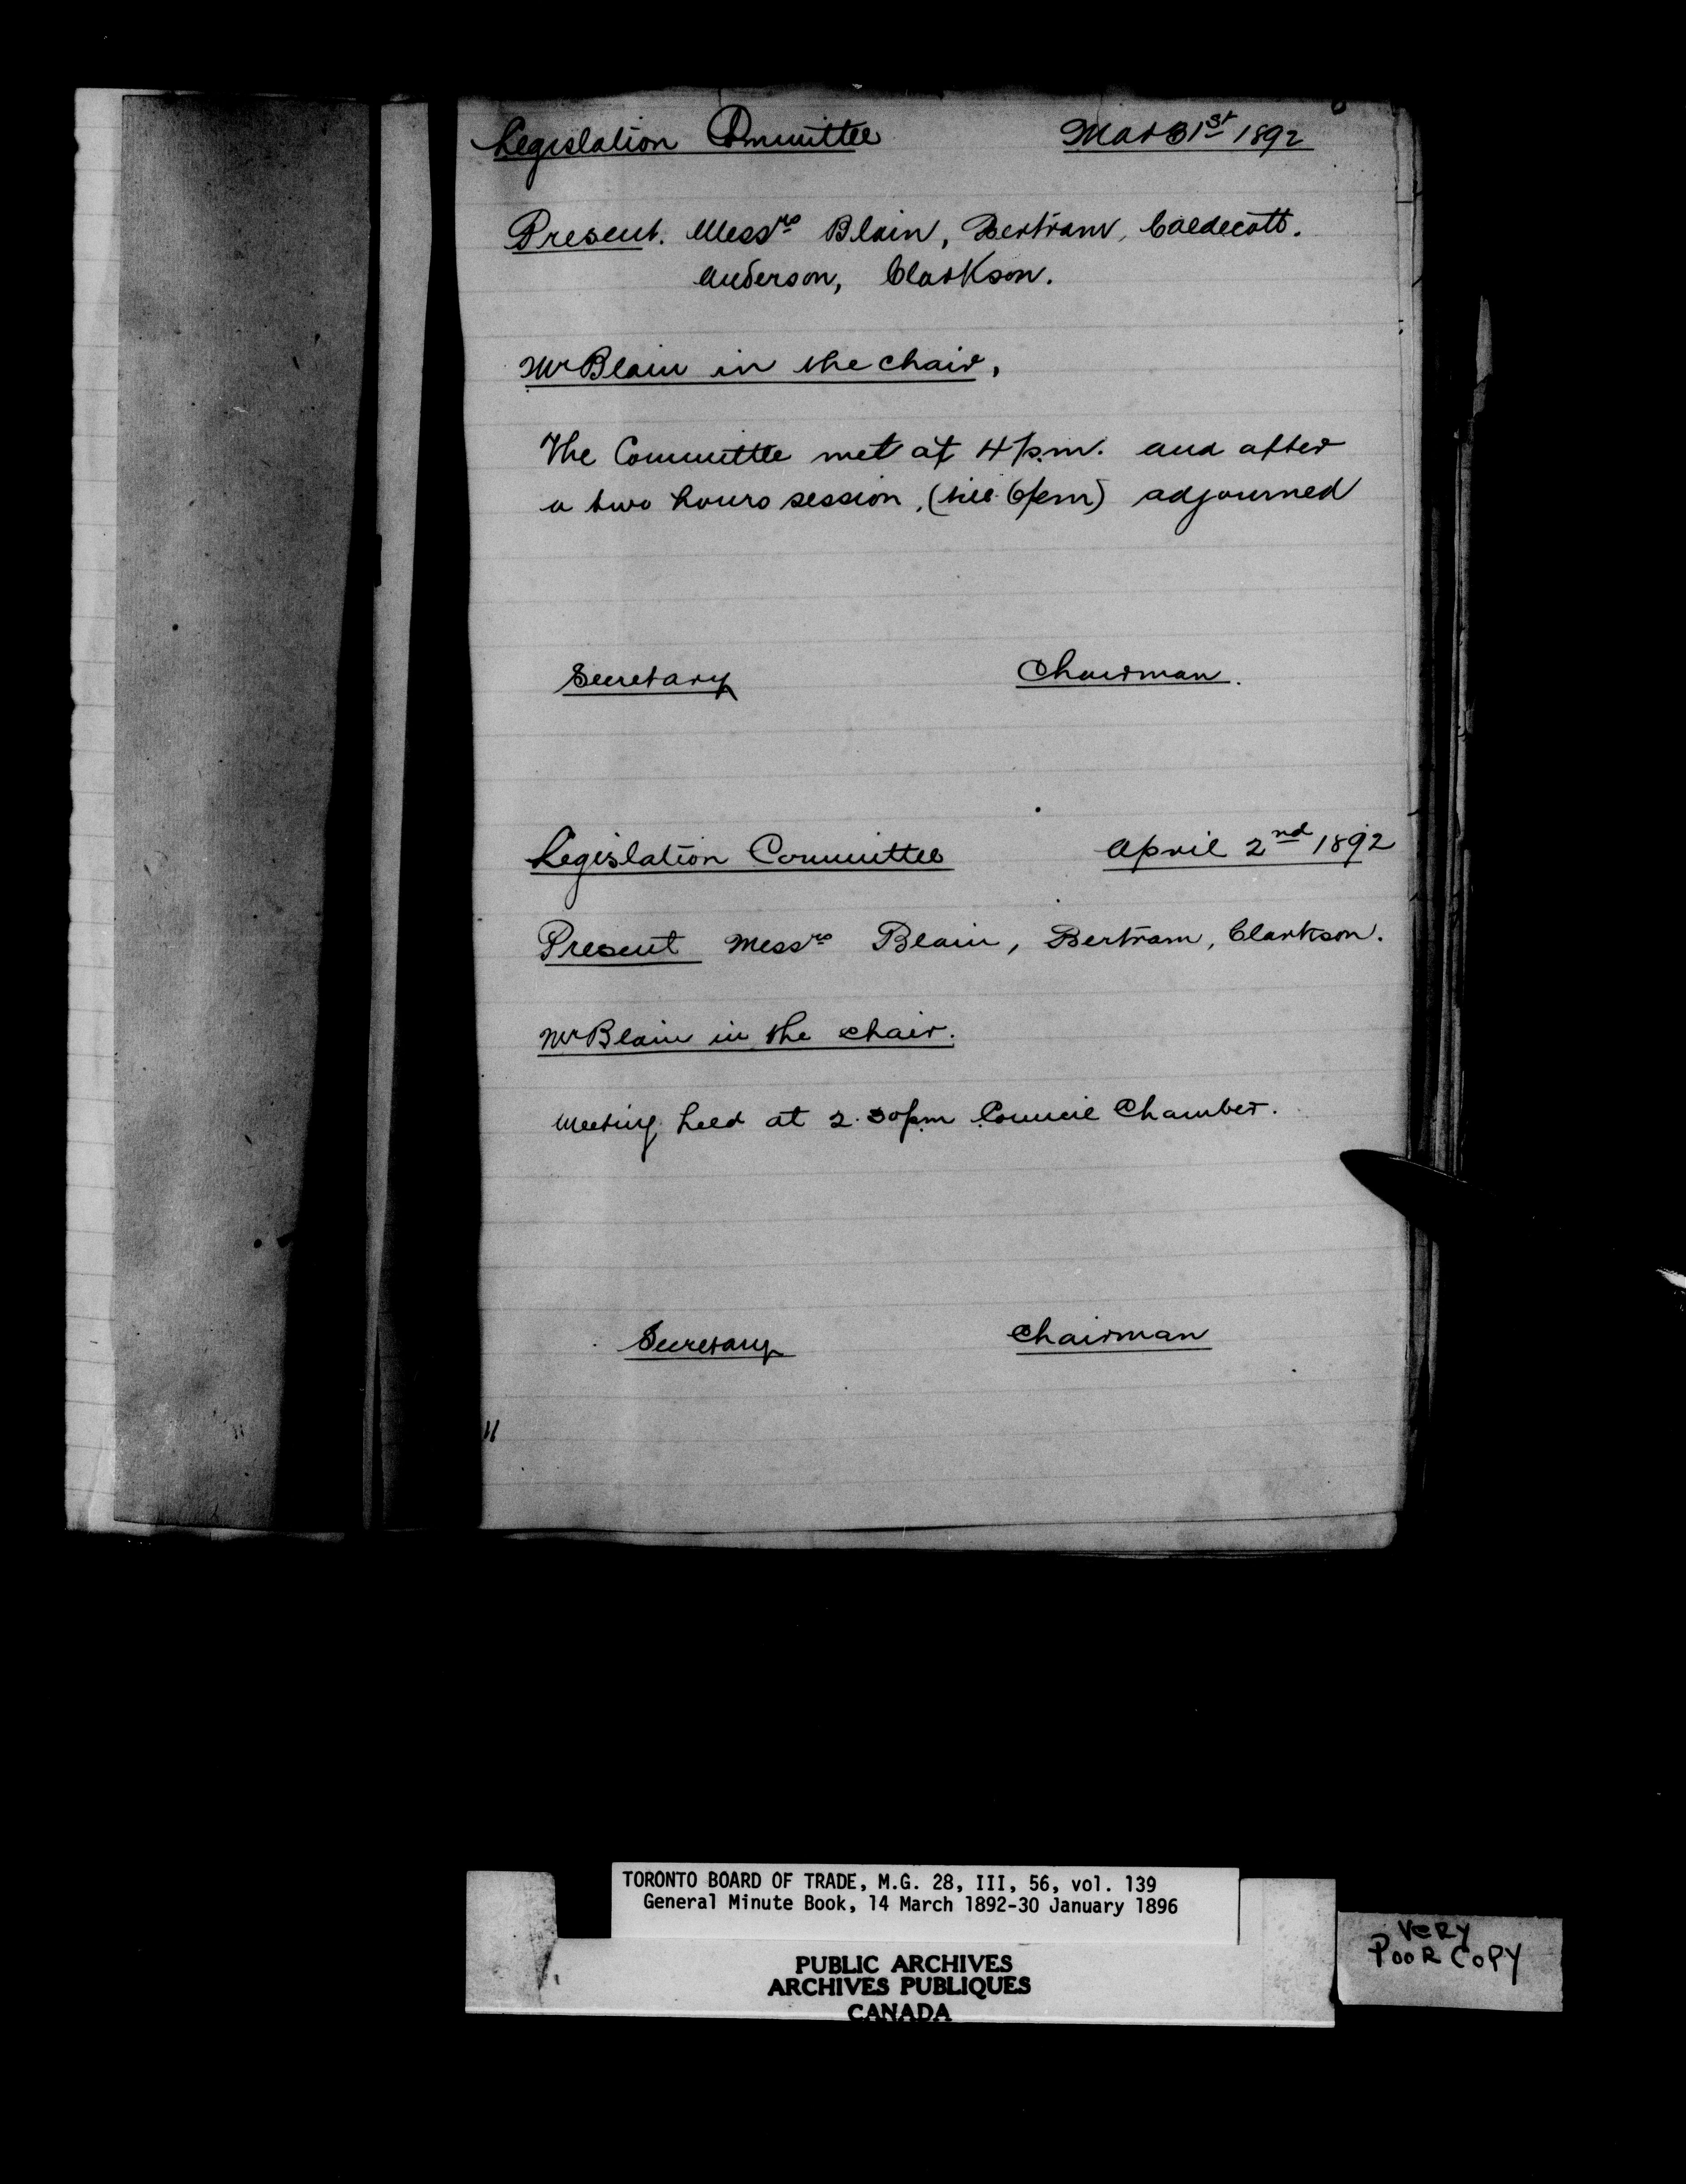 Legislation Committee Mar 31st 1892
Present. Messrs Blain, Bertram, Caldecott.
Anderson, Clarkson.
Mr Blain in the chair,
The Committee met at 4 p.m. and after
a two hours session, (till 6 pm) adjourned
Secretary Chairman.
Legislation Committee April 2nd 1892
Present Messrs Blain, Bertram, Clarkson.
Mr Blain in the chair.
Meeting held at 2.30 pm Council Chamber.
Secretary Chairman
11
TORONTO BOARD OF TRADE, M.G. 28, III, 56, vol. 139
General Minute Book, 14 March 1892-30 January 1896
PUBLIC ARCHIVES
ARCHIVES PUBLIQUES
CANADA
VERY
POOR COPY